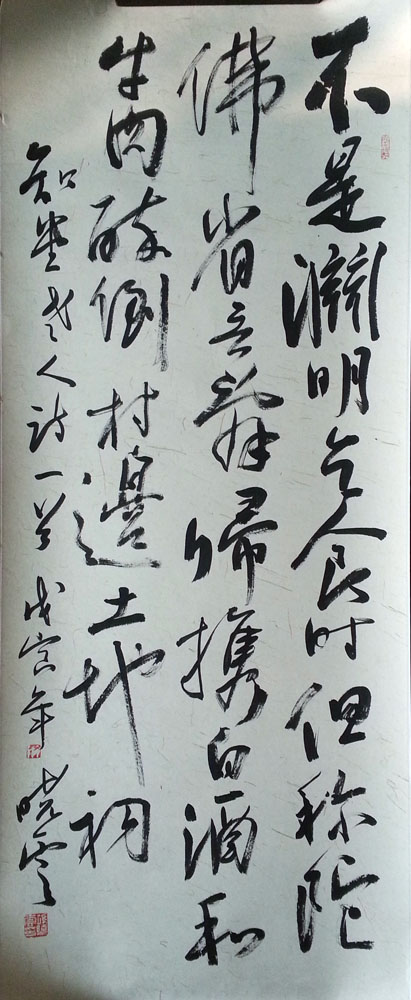 不是淵明乞食时但称陀
佛省言辞歸携白酒和
牛肉醉倒村邊土地祠
知堂老人诗一首 戊寅年 晓